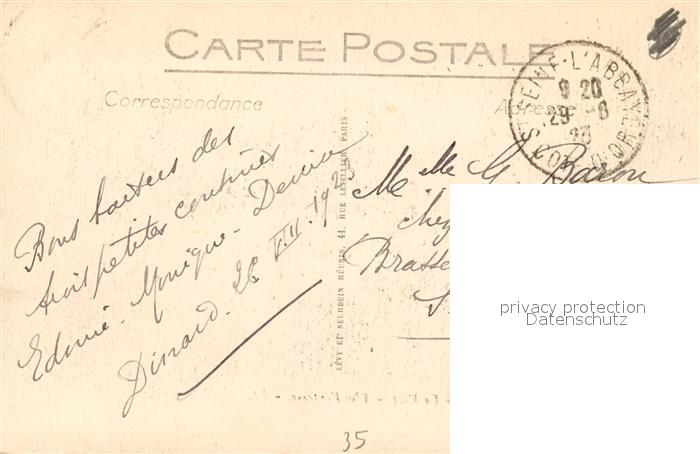 CARTE POSTALE
Correspondance
Adresse
ST SEINE-L'ABBAYE
9 20
29 -8
COTE D'OR
Bons baisers des
trois petites cousines
Edmée - Monique - Denise
Dinard. 26 VIII. 1923
Melle G. Baron
chez
Brasse
LÉVY ET NEURDEIN RÉUNIS, 44, RUE LETELLIER, PARIS
privacy protection
Datenschutz
35